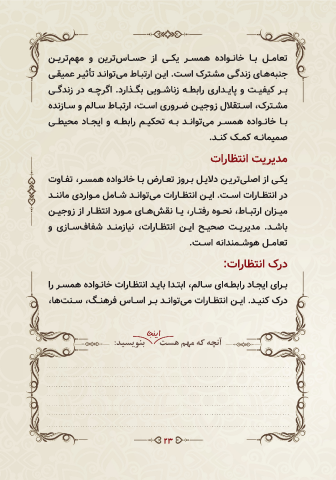 تعامل با خانواده همسر یکی از حساس‌ترین و مهم‌ترین
جنبه‌های زندگی مشترک است. این ارتباط می‌تواند تأثیر عمیقی
بر کیفیت و پایداری رابطه زناشویی بگذارد. اگرچه در زندگی
مشترک، استقلال زوجین ضروری است، ارتباط سالم و سازنده
با خانواده همسر می‌تواند به تحکیم رابطه و ایجاد محیطی
صمیمانه کمک کند.
مدیریت انتظارات
یکی از اصلی‌ترین دلایل بروز تعارض با خانواده همسر، تفاوت
در انتظارات است. این انتظارات می‌تواند شامل مواردی مانند
میزان ارتباط، نحوه رفتار، یا نقش‌های مورد انتظار از زوجین
باشد. مدیریت صحیح این انتظارات، نیازمند شفاف‌سازی و
تعامل هوشمندانه است.
درک انتظارات:
برای ایجاد رابطه‌ای سالم، ابتدا باید انتظارات خانواده همسر را
درک کنید. این انتظارات می‌تواند بر اساس فرهنگ، سنت‌ها،
آنچه که مهم هست اینجا بنویسید:
۲۳